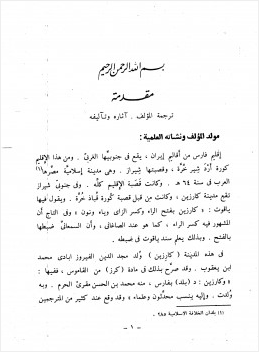 بسم الله الرحمن الرحيم
مقدمة
ترجمة المؤلف . آثاره وتآليفه
مولد المؤلف ونشأته العلمية :
إقليم فارس من أقاليم إيران ، يقع في جنوبيها الغربي . ومن هذا الإقليم
كورة أردشير خرّة ، وقصبتها شيراز . وهى مدينة إسلامية مصّرها
العرب في سنة ٦٤ هـ . وكانت قصبة الإقليم كله . وفى جنوبى شيراز
تقع مدينة كارزين ، وكانت من قبل قصبة كورة قباذ خرّة . ويقول فيها
ياقوت : « كارزين بفتح الراء وكسر الزاى وياء ونون » وفى التاج أن
المشهور فيه كسر الراء ، كما هو عند الصاغانى ، وأن السمعانى ضبطها
بالفتح . وبذلك يعلم سند ياقوت فى ضبطه .
فى هذه المدينة ( كارزين ) ولد مجد الدين الفيروز ابادى محمد
ابن يعقوب . وقد صرح بذلك فى مادة ( كرز ) من القاموس ، ففيها :
« وكارزين : د ( بلد ) بفارس ، منه محمد بن الحسن مقرئ الحرم . وبه
ولدت . وإليه ينسب محدّثون وعلماء » وقد وقع عند كثير من المترجمين
(١) بلدان الخلافة الاسلامية ٢٨٥
— ١ —